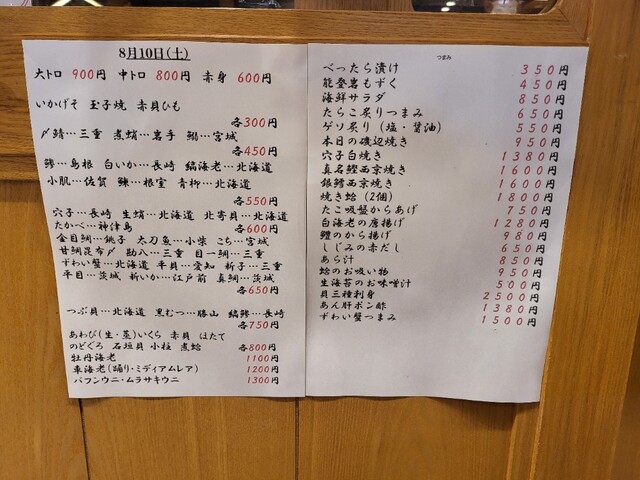 8月10日(土)
大トロ 900円 中トロ 800円 赤身 600円
いかげそ 玉子焼 赤貝ひも
各300円
〆鯖…三重 煮蛤…岩手 鰯…宮城
各450円
鯵…島根 白いか…長崎 縞海老…北海道
小肌…佐賀 鰊…根室 青柳…北海道
各550円
穴子…長崎 生蛸…北海道 北寄貝…北海道
たかべ…神津島
各600円
金目鯛…銚子 太刀魚…小柴 こち…宮城
甘鯛昆布〆 勘八…三重 目一鯛…三重
ずわい蟹…北海道 平貝…愛知 折子…三重
平目…茨城 新いか…江戸前 真鯛…茨城
各650円
つぶ貝…北海道 黒むつ…勝山 縞鯵…長崎
各750円
あわび(生・蒸)いくら 赤貝 ほたて
のどぐろ 石垣貝 小柱 煮蛤
各800円
牡丹海老 1100円
車海老(踊り・ミディアムレア) 1200円
バフンウニ・ムラサキウニ 1300円
つまみ
べったら漬け 350円
能登岩もずく 450円
海鮮サラダ 850円
たらこ炙りつまみ 650円
ゲソ炙り(塩・醤油) 550円
本日の磯辺焼き 950円
穴子白焼き 1380円
真名鰹西京焼き 1600円
銀鱈西京焼き 1600円
焼き蛤(2個) 1800円
たこ吸盤からあげ 750円
白海老の唐揚げ 1280円
鱧のから揚げ 980円
しじみの赤だし 650円
あら汁 850円
蛤のお吸い物 950円
生海苔のお味噌汁 500円
貝三種刺身 2500円
あん肝ポン酢 1380円
ずわい蟹つまみ 1500円